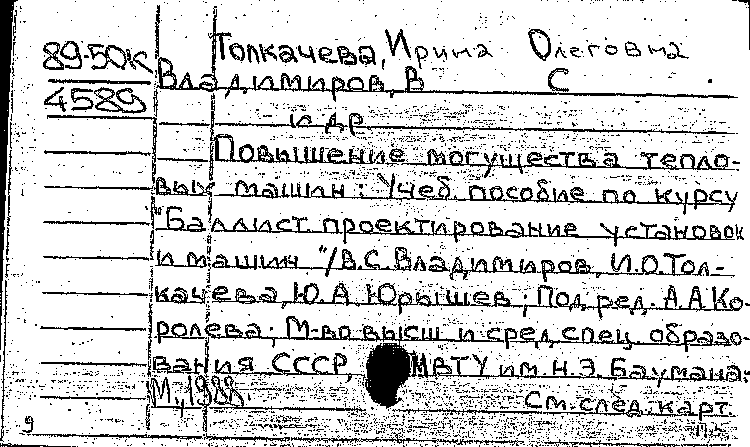 Толкачева, Ирина Олеговна
89-50К
Владимиров, В С.
4589
и др
Повышение могущества тепло-
вых машин: Учеб. пособие по курсу
"Баллист. проектирование установок
и машин"/В.С. Владимиров, И.О. Тол-
качева, Ю.А. Юрышев; Под ред. А.А Ко-
ролева; М-во высш и сред. спец. образо-
вания СССР, МВТУ им. Н.Э. Баумана.-
М., 1988.
См. след. карт.
9